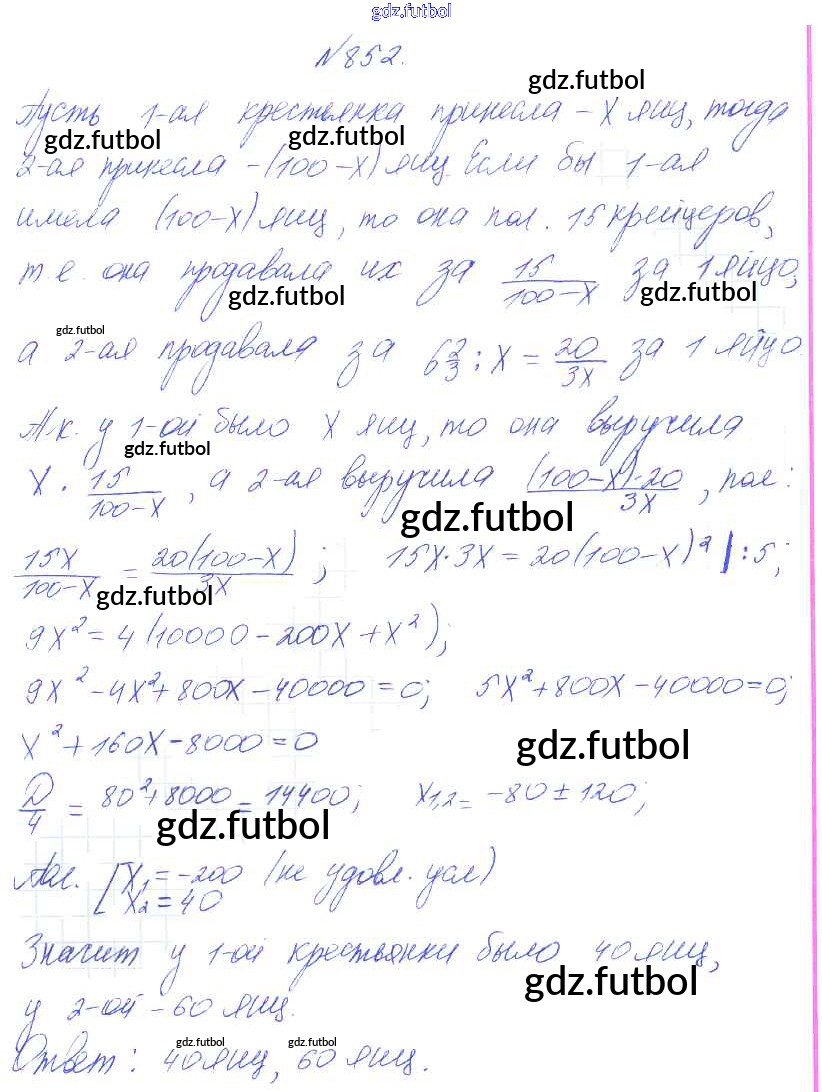 gdz.futbol
№852.
gdz.futbol
Пусть 1-ая крестьянка принесла - x яиц, тогда
gdz.futbol gdz.futbol
2-ая принесла -(100-x) яиц. Если бы 1-ая
имела (100-x) яиц, то она пол. 15 крейцеров,
т.е. она продавала их за 15/(100-x) за 1 яйцо,
gdz.futbol gdz.futbol
gdz.futbol
а 2-ая продавала за 6 2/3 : x = 20/3x за 1 яйцо.
Т.к. у 1-ой было x яиц, то она выручила
gdz.futbol
x · 15/(100-x), а 2-ая выручила (100-x)·20/3x, пол:
gdz.futbol
15x/(100-x) = 20(100-x)/3x; 15x·3x = 20(100-x)² |:5;
gdz.futbol
9x² = 4(10000-200x+x²);
9x²-4x²+800x-40000=0; 5x²+800x-40000=0;
x²+160x-8000=0
gdz.futbol
D/4 = 80²+8000 = 14400; x1,2 = -80±120;
gdz.futbol
Пол. [x₁=-200 (не удовл. усл)
x₂=40
Значит у 1-ой крестьянки было 40 яиц,
gdz.futbol
у 2-ой - 60 яиц.
gdz.futbol gdz.futbol
Ответ: 40 яиц, 60 яиц.